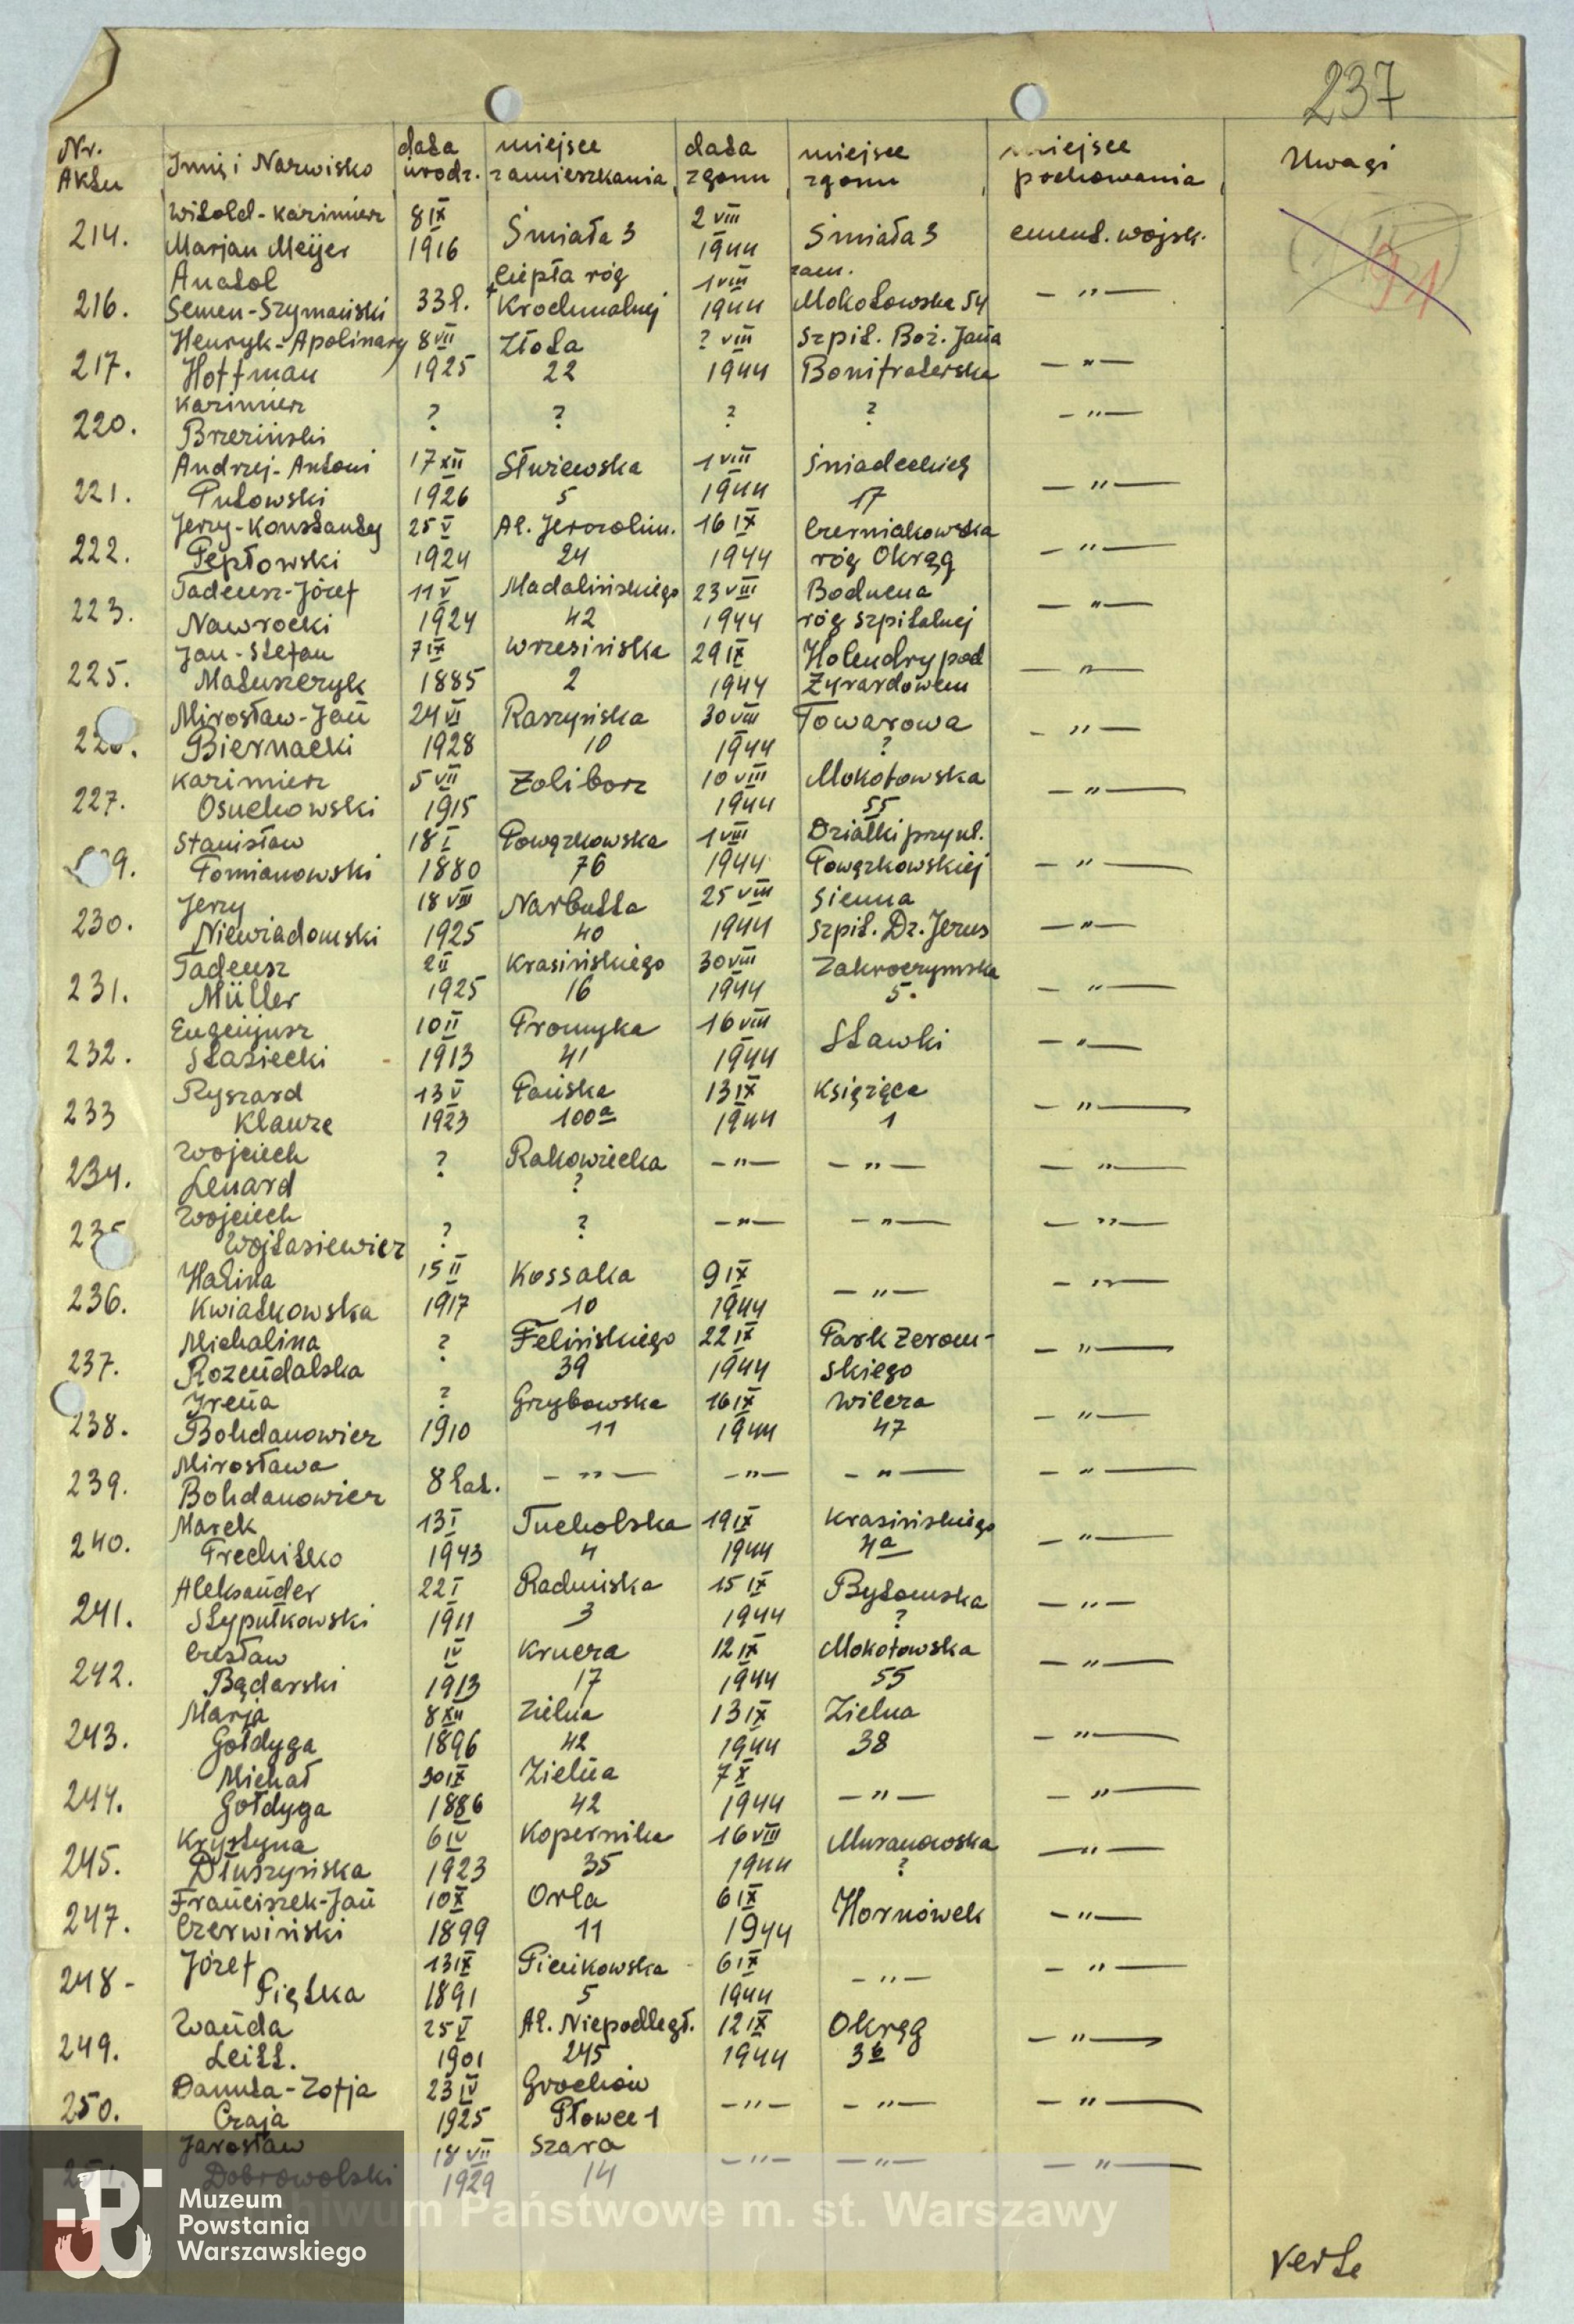 237
Nr. Aktu | Imię i Nazwisko | data urodz. | miejsce zamieszkania | data zgonu | miejsce zgonu | miejsce pochowania | Uwagi
214. | Witold-Kazimierz Marjan Meÿer | 8 IX 1916 | Śmiała 3 | 2 VIII 1944 | Śmiała 3 | cment. wojsk.
216. | Anatol Semen-Szymański | 33 l. | Ciepła róg Krochmalnej | 1 VIII 1944 | zam. Mokotowska 54 | — " —
217. | Henryk-Apolinary Hoffman | 8 VII 1925 | Złota 22 | ? VIII 1944 | Szpit. Boż. Jana Bonifraterska | — " —
220. | Kazimierz Brzeziński | ? | ? | ? | ? | — " —
221. | Andrzej-Antoni Putowski | 17 XII 1926 | 5 | 1 VIII 1944 | Śniadeckich 17 | — " —
222. | Jerzy-Konstanty Pepłowski | 25 V 1924 | Al. Jerozolim. 24 | 16 IX 1944 | Czerniakowska róg Okrąg | — " —
223. | Tadeusz-Józef Nawrocki | 11 V 1924 | Madalińskiego 42 | 23 VIII 1944 | Boduena róg Szpitalnej | — " —
225. | Jan-Stefan Matuszczyk | 7 IX 1885 | Wrzesińska 2 | 29 IX 1944 | Holendry pod Żyrardowem | — " —
Mirosław-Jan Biernacki | 24 VI 1928 | Raszyńska 10 | 30 VIII 1944 | Towarowa ? | — " —
227. | Kazimierz Osuchowski | 5 VII 1915 | Żoliborz | 10 VIII 1944 | Mokotowska 55 | — " —
9. | Stanisław Pomianowski | 18 I 1880 | Powązkowska 76 | 1 VIII 1944 | Działki przy ul. Powązkowskiej | — " —
230. | Jerzy Niewiadomski | 18 VIII 1925 | Narbutta 40 | 25 VIII 1944 | Sienna Szpit. Dz. Jezus | — " —
231. | Tadeusz Müller | 2 II 1925 | Krasińskiego 16 | 30 VIII 1944 | Zakroczymska 5. | — " —
232. | Eugenjusz Stasiecki | 10 II 1913 | Promyka 41 | 16 VIII 1944 | Stawki | — " —
233 | Ryszard Klauze | 13 V 1923 | Pańska 100a | 13 IX 1944 | Książęca 1 | — " —
234. | Wojciech Lenard | ? | Rakowiecka ? | — " — | — " — | — " —
235 | Wojciech Wojtasiewicz | ? | ? | — " — | — " — | — " —
236. | Halina Kwiatkowska | 15 II 1917 | Kossaka 10 | 9 IX 1944 | — " — | — " —
237. | Michalina Rozendalska | ? | Felińskiego 39 | 22 IX 1944 | Park Żeromskiego | — " —
238. | Irena Bohdanowicz | ? 1910 | Grzybowska 11 | 16 IX 1944 | Wilcza 47 | — " —
239. | Mirosława Bohdanowicz | 8 lat. | — " — | — " — | — " — | — " —
240. | Marek Frechitko | 13 I 1943 | Tucholska 4 | 19 IX 1944 | Krasińskiego 4a | — " —
241. | Aleksander Stypułkowski | 22 I 1911 | Radmiska 3 | 15 IX 1944 | Bytomska ? | — " —
242. | Czesław Bądarski | IV 1913 | Krucza 17 | 12 IX 1944 | Mokotowska 55 | — " —
243. | Marja Gołdyga | 8 XII 1896 | Zielna 42 | 13 IX 1944 | Zielna 38 | — " —
244. | Michał Gołdyga | 30 IX 1886 | Zielna 42 | 7 X 1944 | — " — | — " —
245. | Krystyna Dłuszyńska | 6 IV 1923 | Kopernika 35 | 16 VIII 1944 | Muranowska ? | — " —
247. | Franciszek-Jan Czerwiński | 10 X 1899 | Orla 11 | 6 IX 1944 | Hornówek | — " —
248- | Józef Piętka | 13 IX 1891 | 5 | 6 IX 1944 | — " — | — " —
249. | Wanda Leitt. | 25 V 1901 | Al. Niepodległ. 245 | 12 IX 1944 | Okrąg 3b | — " —
250. | Danuta-Zofja Czaja | 23 IV 1925 | Grochów Płowce 1 | — " — | — " — | — " —
251. | Jarosław Dobrowolski | 18 VII 1929 | Szara 14 | — " — | — " — | — " —
verte
Muzeum
Powstania
Warszawskiego
hiwum Państwowe m. st. Warszawy